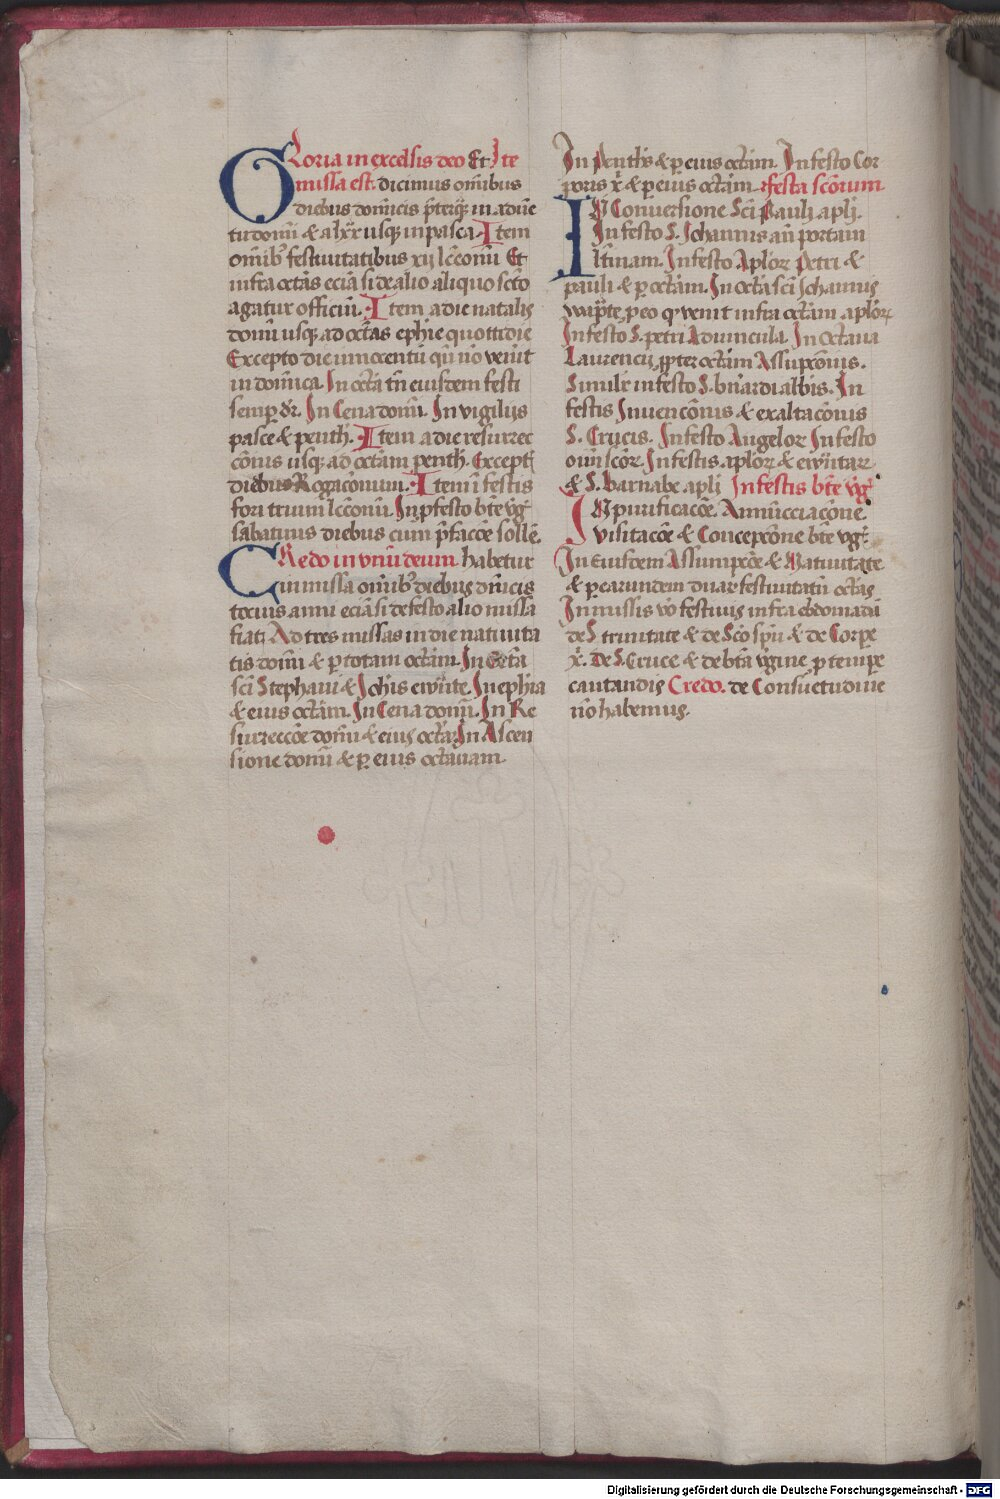 Gloria in excelsis deo Et Ite
missa est. dicimus om̅ibus
diebus dom̅icis p̅terqȝ in adue̅
tu dom̅i & a lxx usqȝ in pasca. Item
om̅ibꝰ festiuitatibus xij lc̅conu̅ Et
infra octa̅s ecia̅ si de alio aliquo sc̅to
agatur officiu̅. Item a die natalis
dom̅i usqȝ ad octa̅s ephi̅e quottidie
Excepto die innocentu̅ qn̅ no̅ venit
in dom̅ica. In octa̅ tn̅ eiusdem festi
semꝑ dr̅. In Cena dom̅i. In vigilijs
pasce & penth̅. Item a die resurrec
co̅nis usqȝ ad octa̅m penth̅. Except̅
diebus Rogaco̅num. Item i̅ festis
fori trium lc̅conu̅. In ꝓfesto bt̅e v̅g̅
sabatinis diebus cum p̅facco̅e solle̅.
Credo in vnu̅ deum habetur
in missa om̅ibꝰ diebus dn̅icis
tocius anni ecia̅ si de festo alio missa
fiat. Ad tres missas in die natiuita
tis dom̅i & ꝑ totam octa̅m. In octa̅
sc̅i Stephani & Joh̅is ewn̅te. In ephi̅a
& eius octa̅m. In Cena dom̅i. In Re
surreccio̅e dom̅i & eius octa̅. In Ascen
sione dom̅i & ꝑ eius octauam
In Penth̅s & ꝑ eius octa̅m. In festo Cor
poris x̅ & ꝑ eius octa̅m. festa sc̅orum
IN Conuersione Sc̅i Pauli apl̅i.
In festo S. Johannis an̅ portam
lt̅inam. In festo Apl̅oꝝ Petri &
pauli & ꝑ octa̅m. In octa̅ sc̅i Johannis
wap̅te, ꝑ eo q̅ venit infra octa̅m apl̅oꝝ
In festo S. petri Aduincula. In octaua
Laurencij ꝓpter octa̅m Assupco̅nis.
Simil̅r in festo S. bn̅ardi alb̅is. In
festis Inuenco̅nis & exaltaco̅nis
S. Crucis. In festo Angeloꝝ In festo
oim̅ sc̅oꝝ. In festis apl̅oꝝ & ewn̅taꝝ
& S. barnabe apl̅i In festis bt̅e v̅g̅
IN purificaco̅e. Annu̅cciaco̅ne
visitaco̅e & Concepco̅ne bt̅e vg̅.
In Eiusdem Assumpco̅e & Natiuitate
& ꝑ earundem duaꝝ festiuitatu̅ octa̅s
In missis v̅o festiuis infra ebdomada̅
de S. trinitate & de Sc̅o sp̅u & de Corꝑe
x̅. De S. Cruce & de bt̅a v̅gine ꝓ tempe̅
cantandis Credo. de Consuetudine
no̅ habemus.
Digitalisierung gefördert durch die Deutsche Forschungsgemeinschaft - DFG